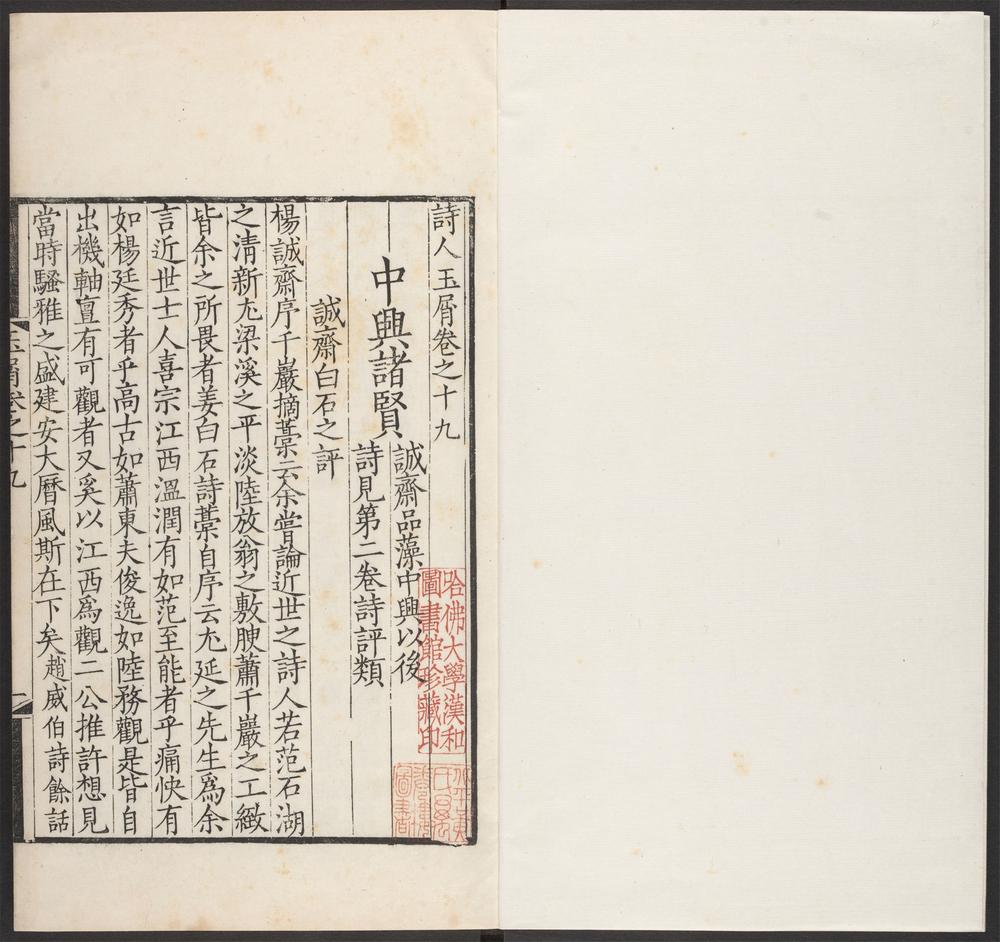 詩人玉屑卷之十九
中興諸賢
誠齋品藻中興以後
詩見第二卷詩評類
誠齋白石之評
楊誠齋序千巖摘藁云余嘗論近世之詩人若范石湖
之清新尤梁溪之平淡陸放翁之敷腴蕭千巖之工緻
皆余之所畏者姜白石詩藁自序云尤延之先生爲余
言近世士人喜宗江西溫潤有如范至能者乎痛快有
如楊廷秀者乎高古如蕭東夫俊逸如陸務觀是皆自
出機軸亶有可觀者又奚以江西爲觀二公推許想見
當時騷雅之盛建安大曆風斯在下矣趙威伯詩餘話
玉屑卷之十九
一
哈佛大學漢和
圖書館珍藏印